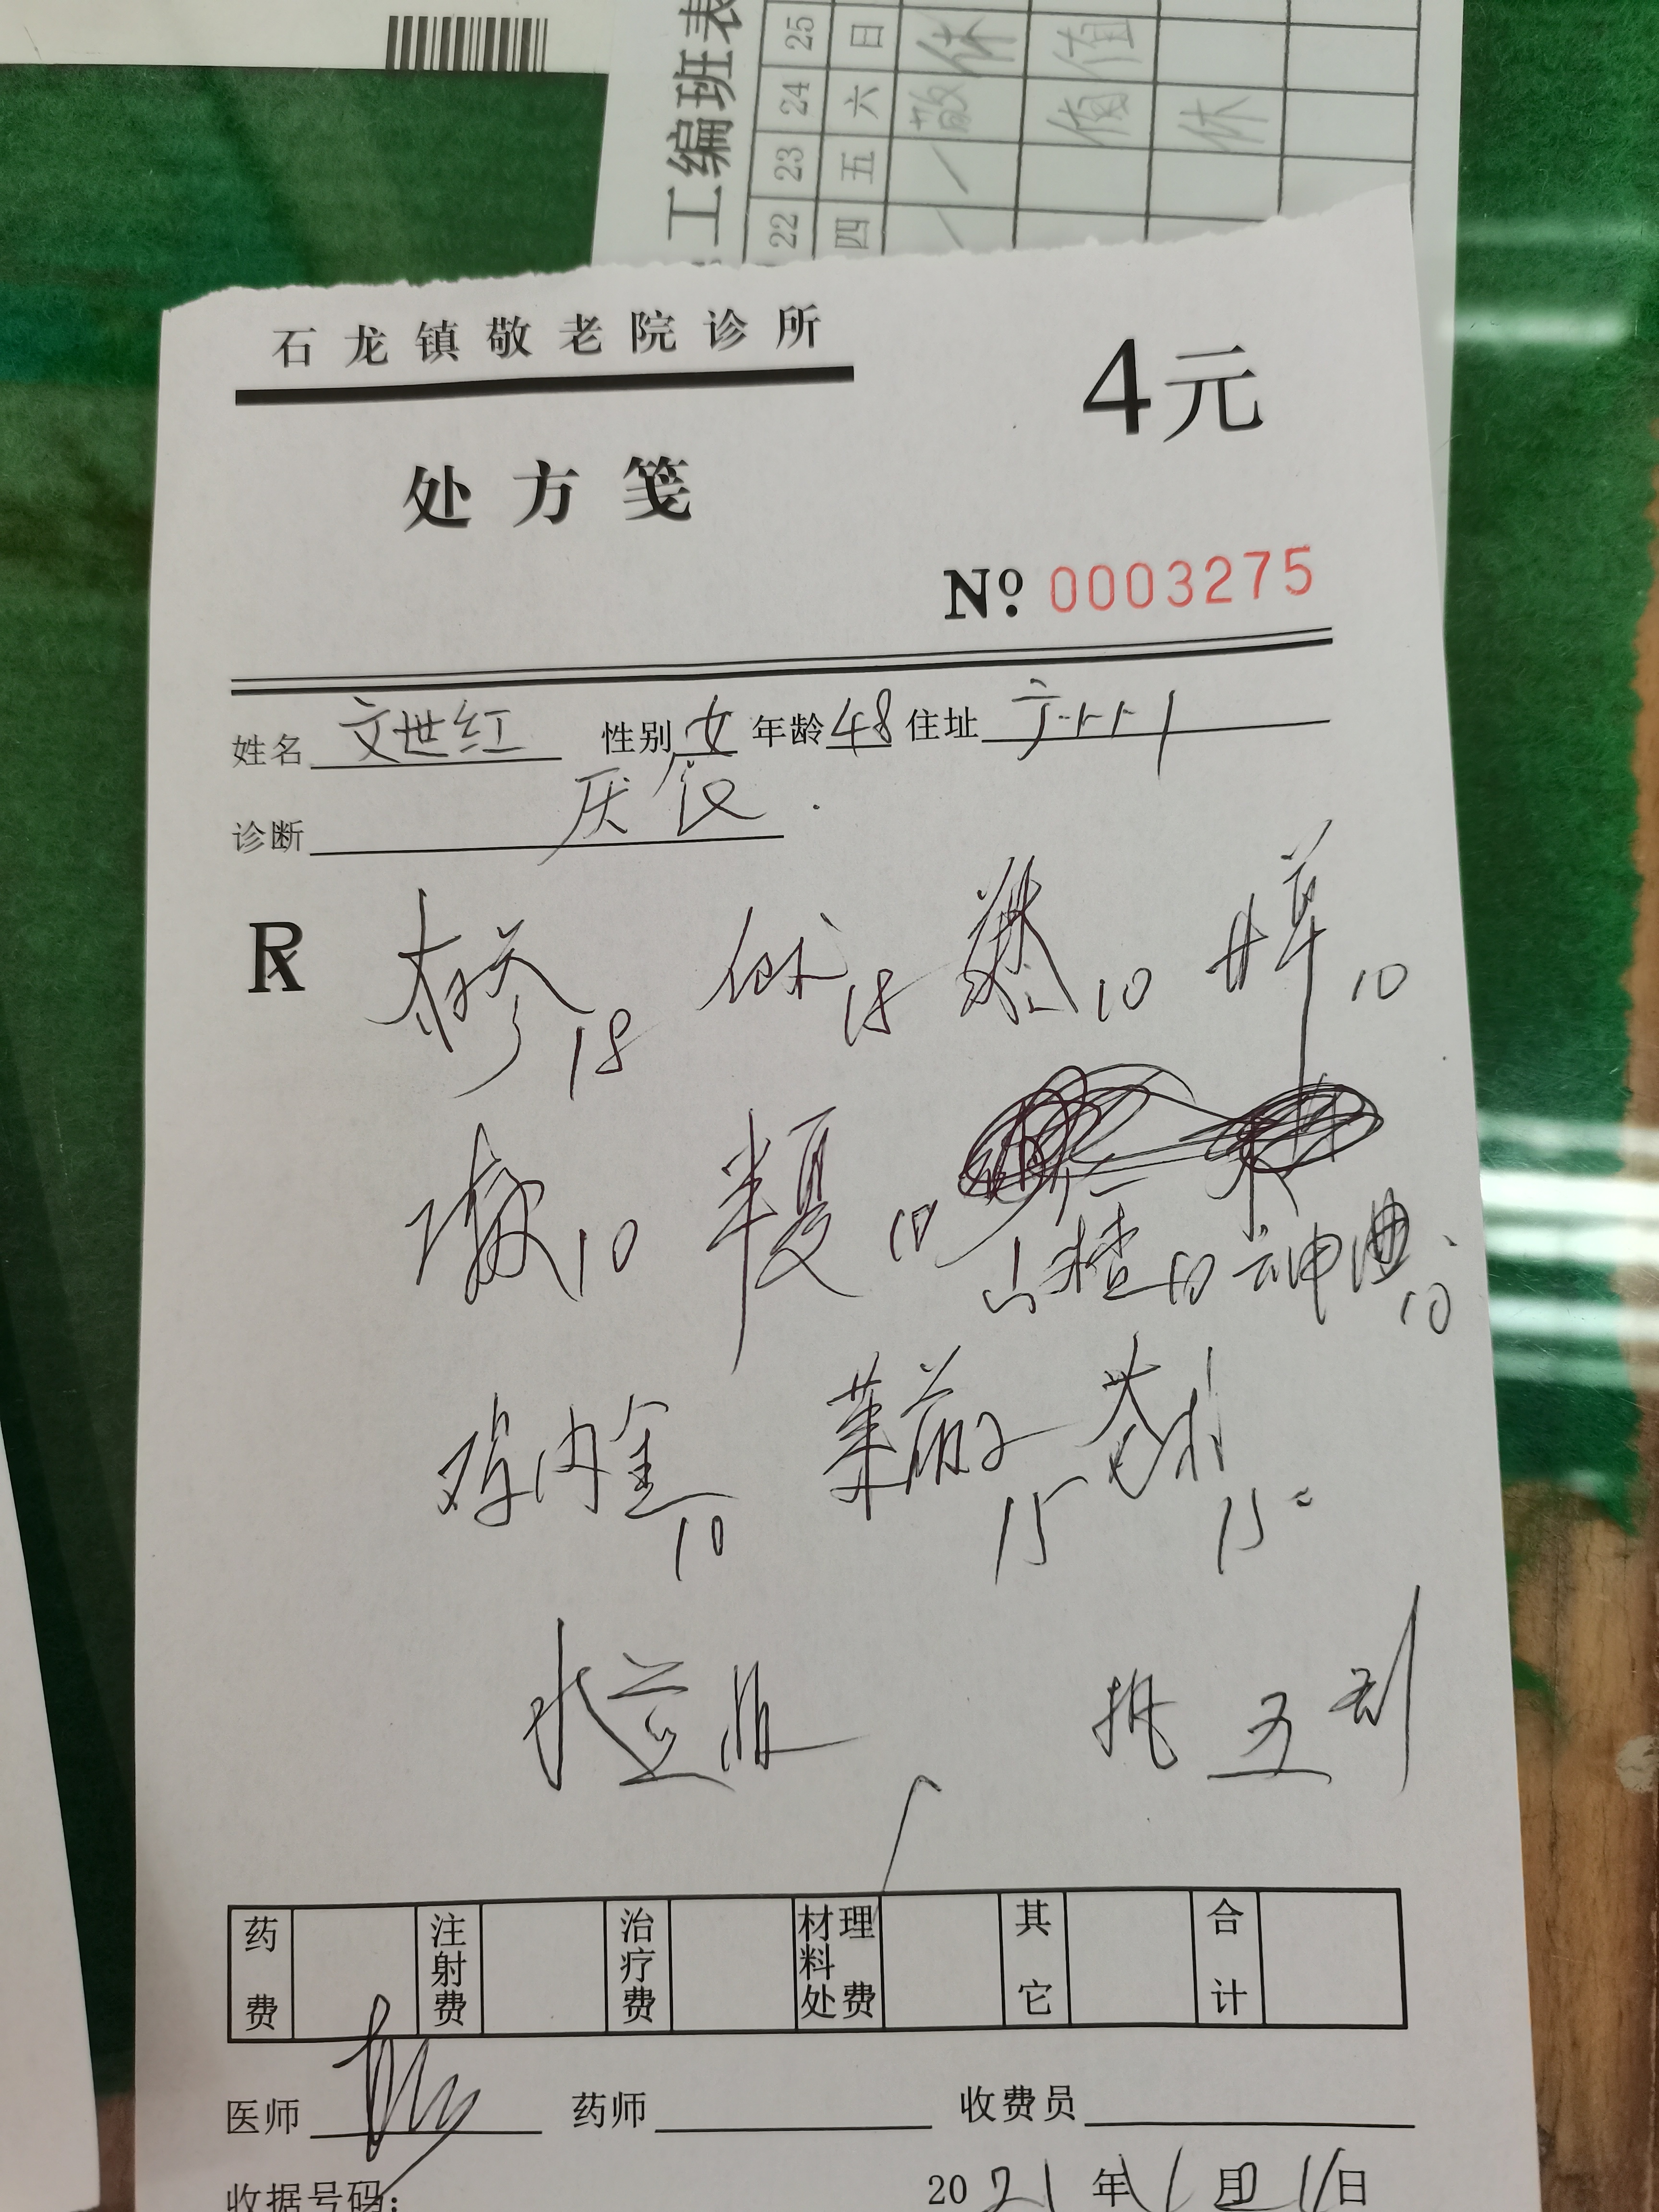 工编班表
22 23 24 25
四 五 六 日
敬 休
值 值
休
石龙镇敬老院诊所
4元
处方笺
No. 0003275
姓名 文世红 性别 女 年龄 48 住址
诊断 厌食
R 18 15 10 甘草 10
10 半夏 10 山楂 10 神曲 10
鸡内金 10 莱菔子 15 15
水煎服 五剂
药费 注射费 治疗费 材料处理费 其它 合计
医师 药师 收费员
收据号码: 2021年1月11日